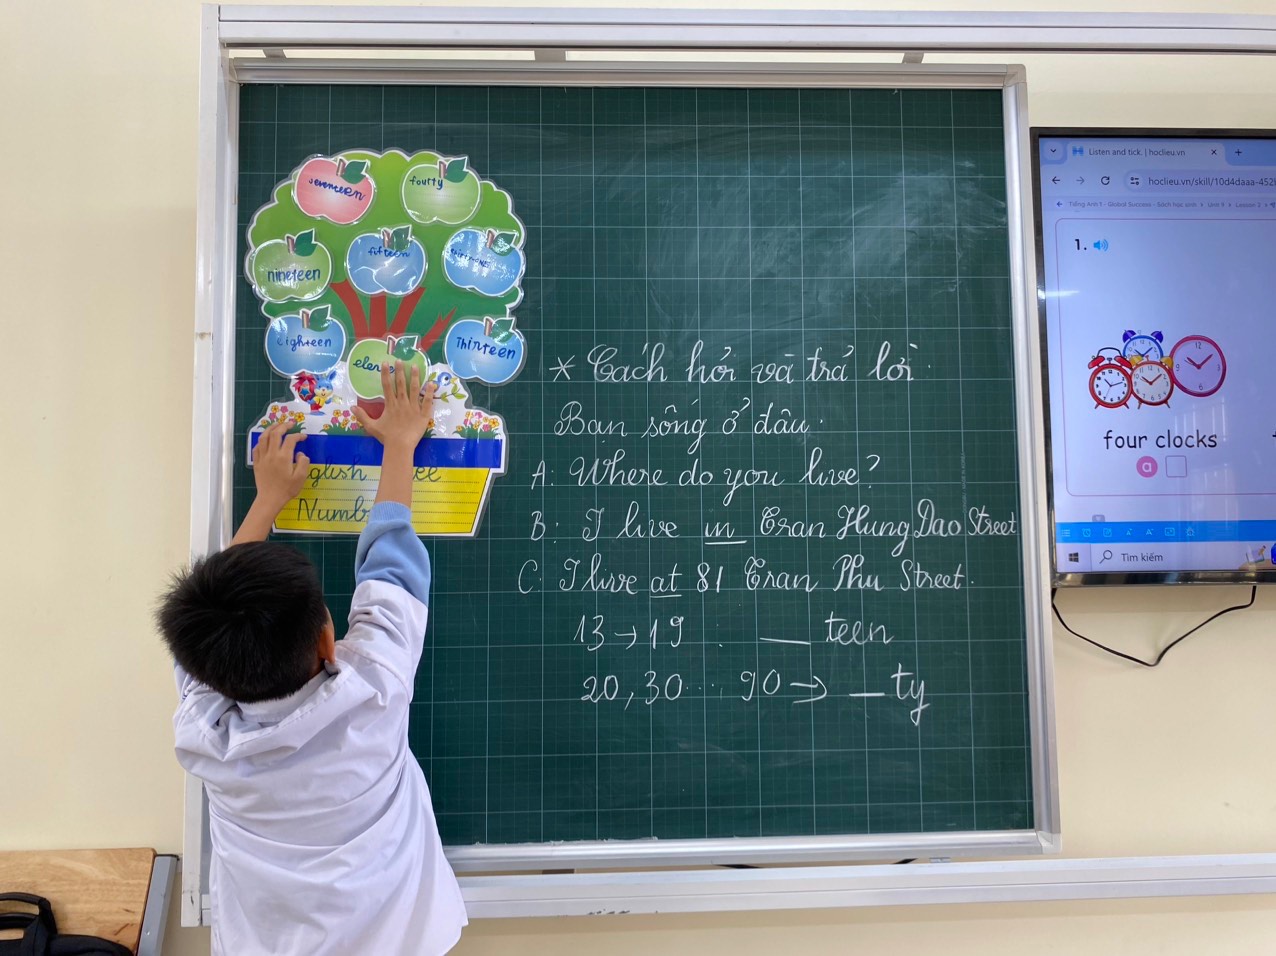 seventeen
fourty
nineteen
fifteen
eighteen
Thirteen
* Cách hỏi và trả lời
Bạn sống ở đâu.
A: Where do you live?
B: I live in Tran Hung Dao Street
C: I live at 81 Tran Phu Street.
13 → 19 : __ teen
20, 30 ... 90 → _ ty
Listen and tick. | hoclieu.vn
hoclieu.vn/skill/10d4daaa-452
Tiếng Anh 1 - Global Success - Sách học sinh
1.
four clocks
a
Tìm kiếm